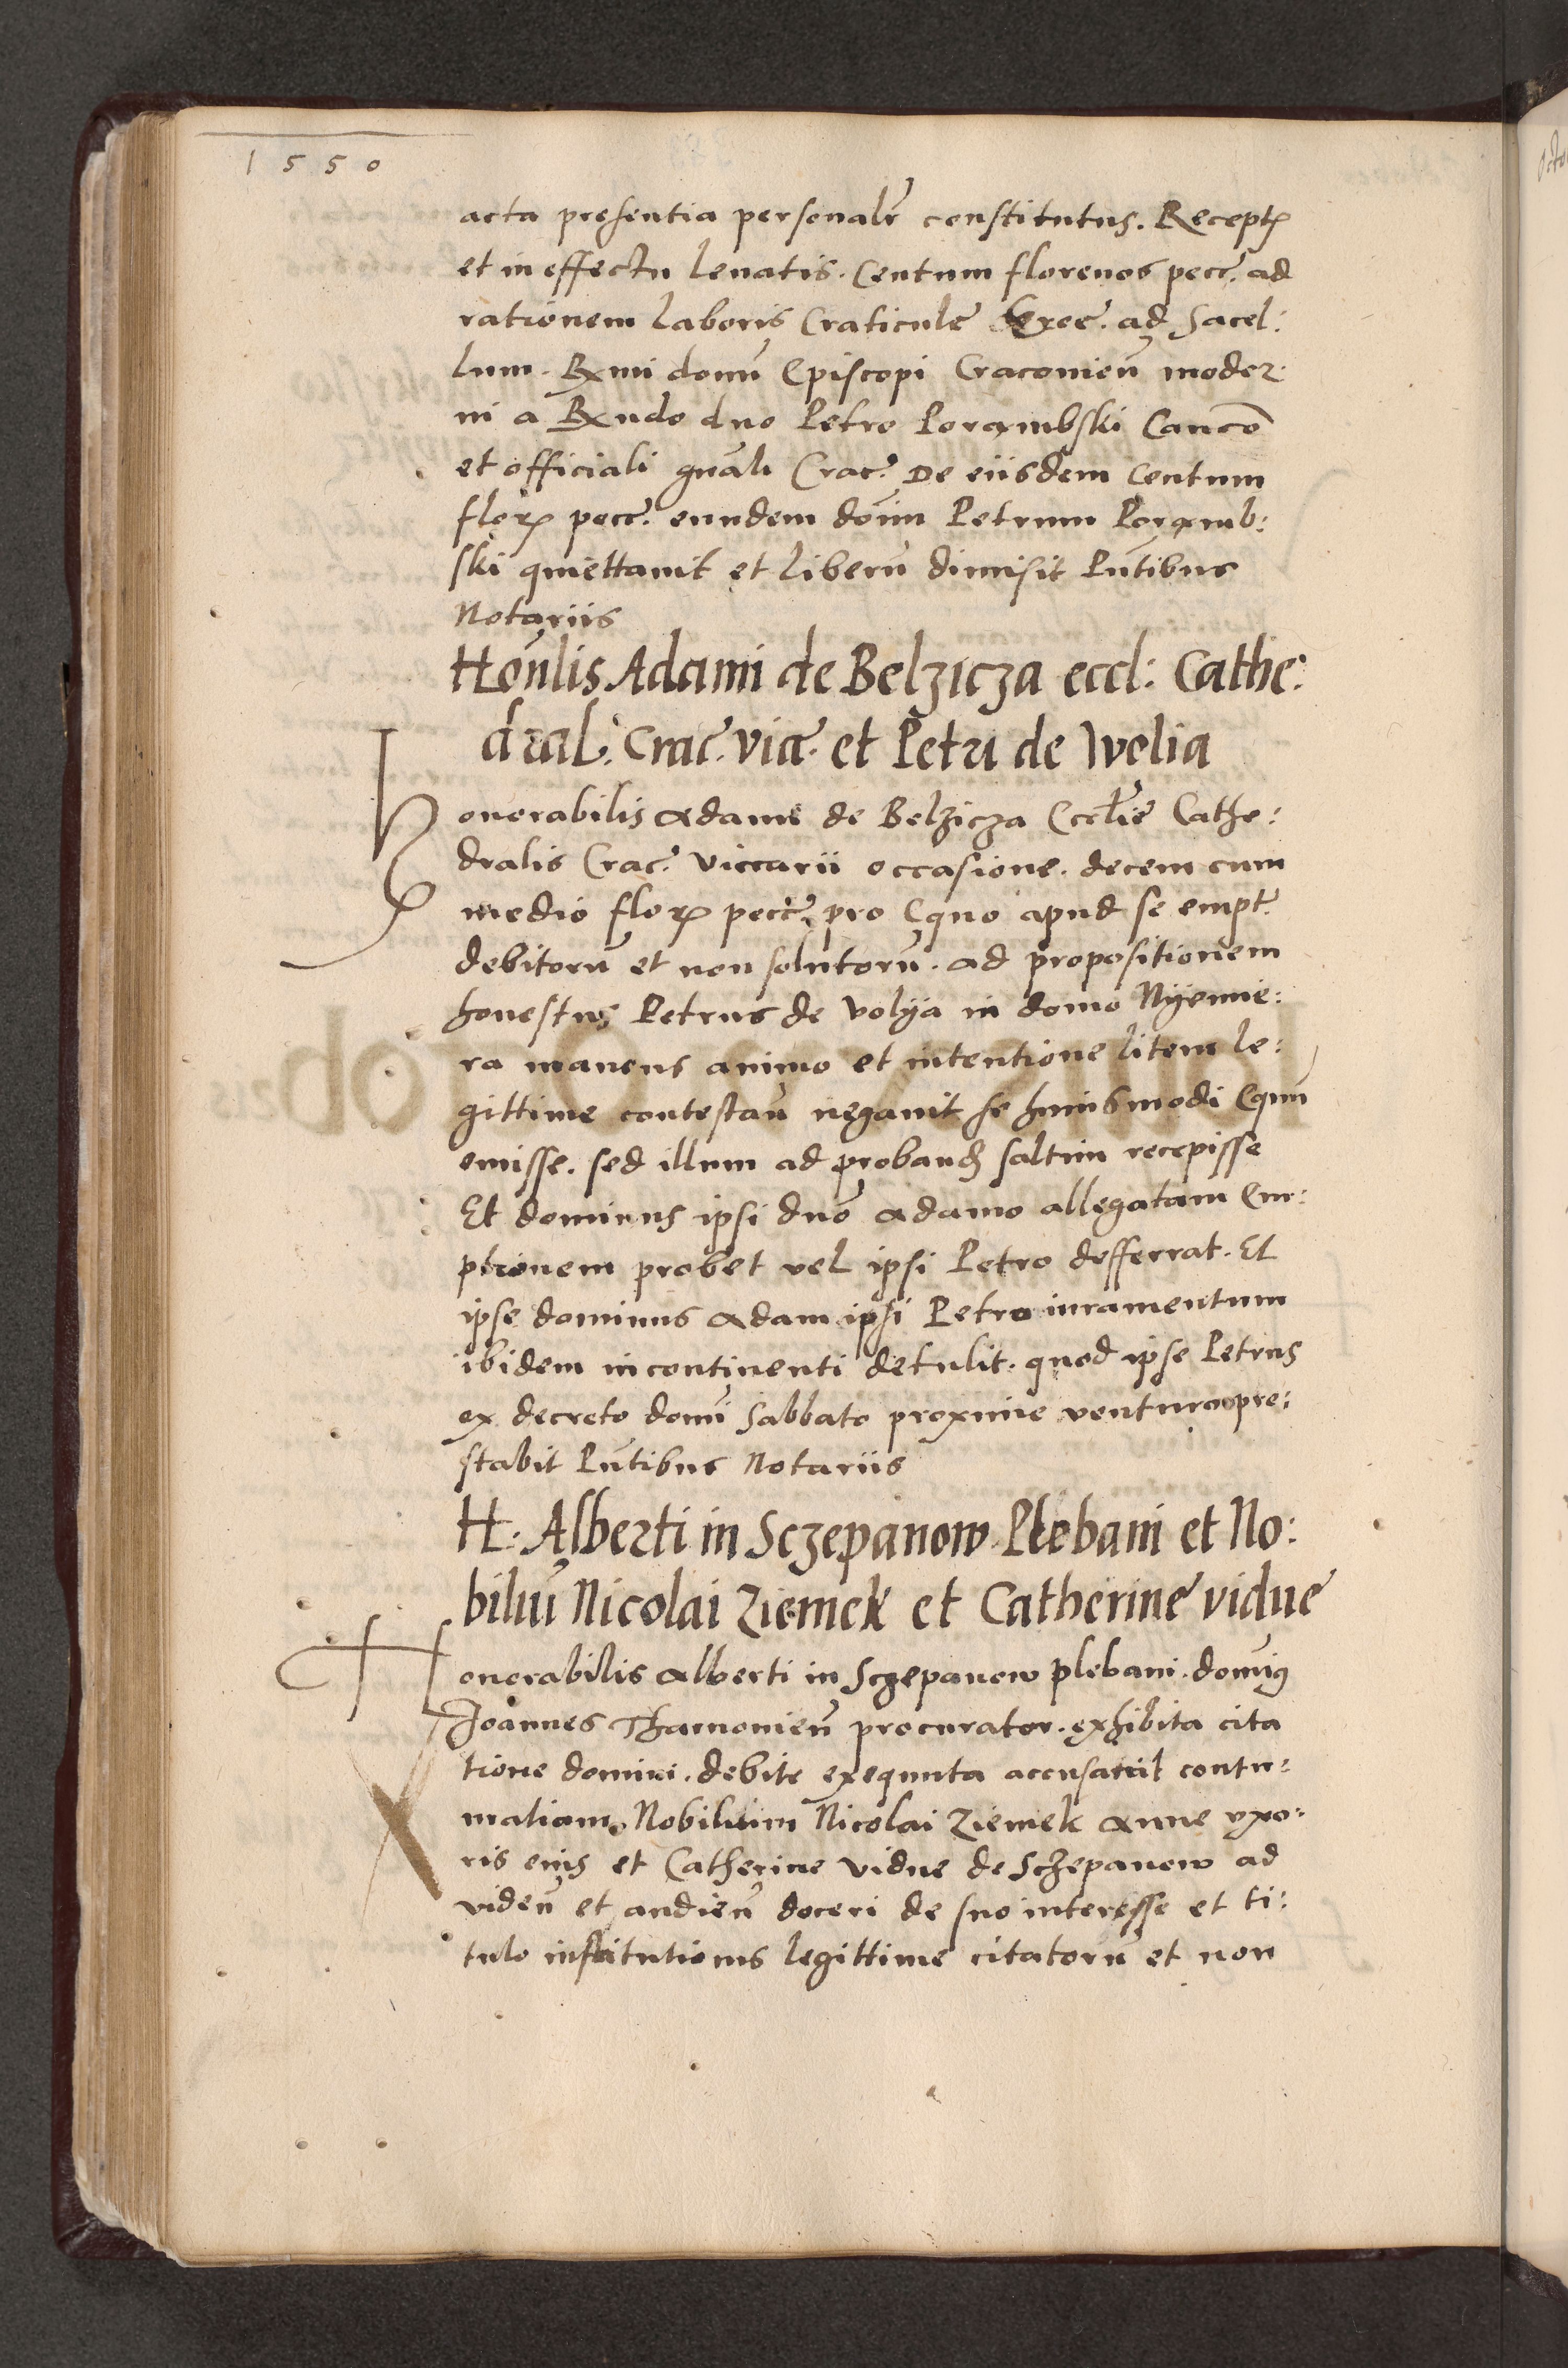 1550
acta presentia personalr constitutus. Recept
et in effectu levatis. Centum florenos pecc. ad
rationem laboris Craticule ad Sacel:
lum. Rxmi domn Episcopi Cracovien moder
ni a Rxndo dno Petro Porambski Canco
et officiali gnali Crac. De eiisdem Centum
flor pecc. eundem domn Petrum Poramb:
ski quiettavit et liberu dimisit Pntibus
Notariis
Honlis Adami de Belzicza eccl: Cathe:
dral: Crac. vic. et Petri de Wolia
Honorabilis Adami de Belzicza Ecclie Cathe:
dralis Crac. Viccarii occasione. decem cum
medio flor pecc. pro Equo apud se empt.
debitoru et non solutoru. ad propositionem
honestus Petrus de Volya in domo Nyemie:
ra manens animo et intentione litem le:
gittime contestan negavit se huiusmodi Equm
emisse. sed illum ad proband saltim recepisse
Et dominus ipsi dno Adamo allegatam Em:
ptionem probet vel ipsi Petro defferrat. Et
ipse dominus Adam ipsi Petro iuramentum
ibidem incontinenti detulit. quod ipse Petrus
ex decreto domn Sabbato proxime venturo pre:
stabit Pntibus Notariis
H. Alberti in Sczepanow Plebani et No:
biliu Nicolai Ziemek et Catherine vidue
Honorabilis Alberti in Sczepanow plebani. domng
Joannes Tharnovien procurator. exhibita cita
tione domini. debite exequuta accusavit contu:
matiam. Nobilium Nicolai Ziemek Anne uxo:
ris eius et Catherine Vidue de Sczepanow ad
viden et audien doceri de suo interesse et ti:
tulo institutionis legittime citatoru et non